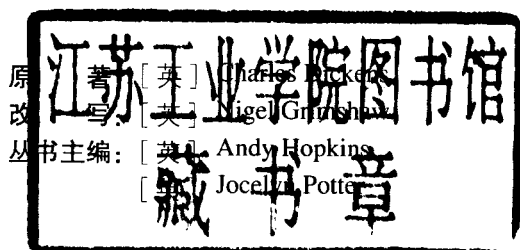 江苏工业学院图书馆
藏书章
原 著：[英] Charles Dickens
改 写：[英] Nigel Grimshaw
丛书主编：[英] Andy Hopkins
[英] Jocelyn Potter